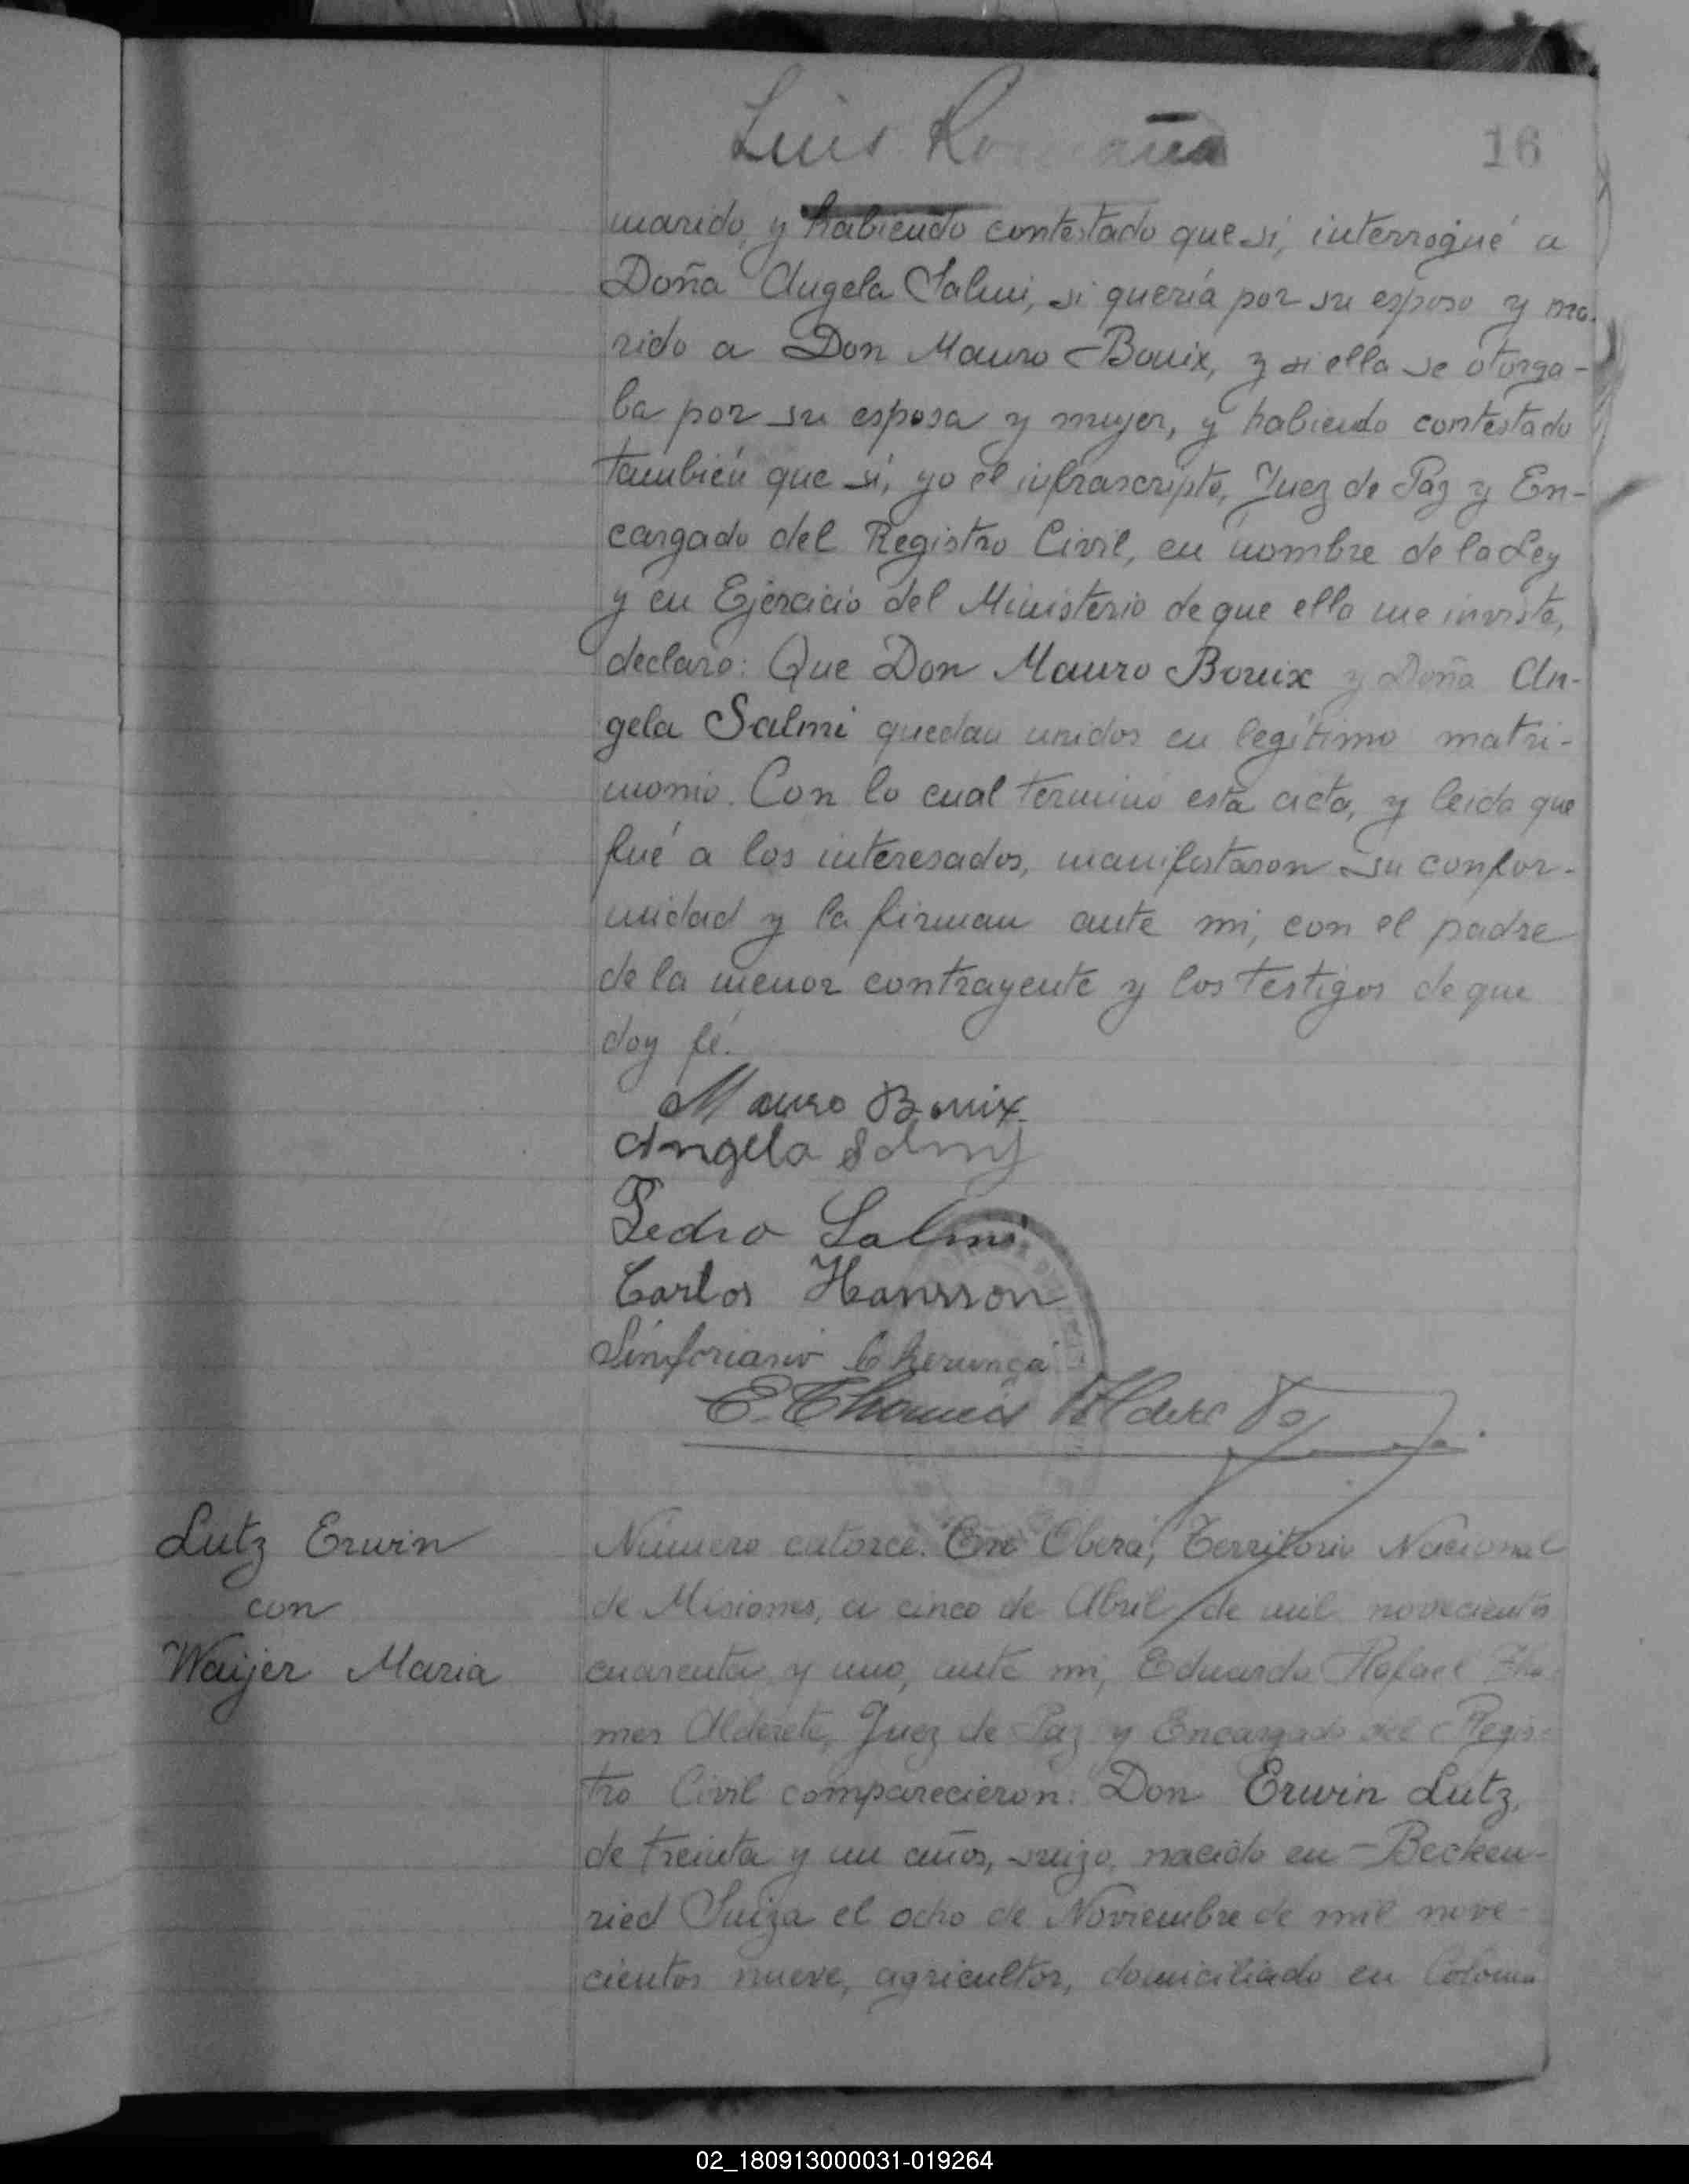 Luis
16
marido, y habiendo contestado que si, interrogué a
Doña Angela Salmi, si quería por su esposo y ma-
rido a Don Mauro Bouix, y si ella se otorga-
ba por su esposa y mujer, y habiendo contestado
también que si, yo el infrascripto, Juez de Paz y En-
cargado del Registro Civil, en nombre de la Ley
y en Ejercicio del Ministerio de que ella me inviste,
declaro: Que Don Mauro Bouix y Doña An-
gela Salmi quedan unidos en legítimo matri-
monio. Con lo cual terminó esta acta, y leida que
fué a los interesados, manifestaron su confor-
midad y la firman ante mi, con el padre
de la menor contrayente y los testigos de que
doy fé.
Mauro Bouix
Angela Salmi
Pedro Salmi
Carlos Hansson
Sinforiano
E. Thames Alderete
Lutz Erwin
con
Waijer Maria
Número catorce. En Oberá, Territorio Nacional
de Misiones, a cinco de Abril de mil novecientos
cuarenta y uno, ante mi, Eduardo Rafael Tha-
mes Alderete, Juez de Paz y Encargado del Regis-
tro Civil comparecieron: Don Erwin Lutz,
de treinta y un años, suizo, nacido en Becken-
ried Suiza el ocho de Noviembre de mil nove-
cientos nueve, agricultor, domiciliado en Colonia
02_180913000031-019264